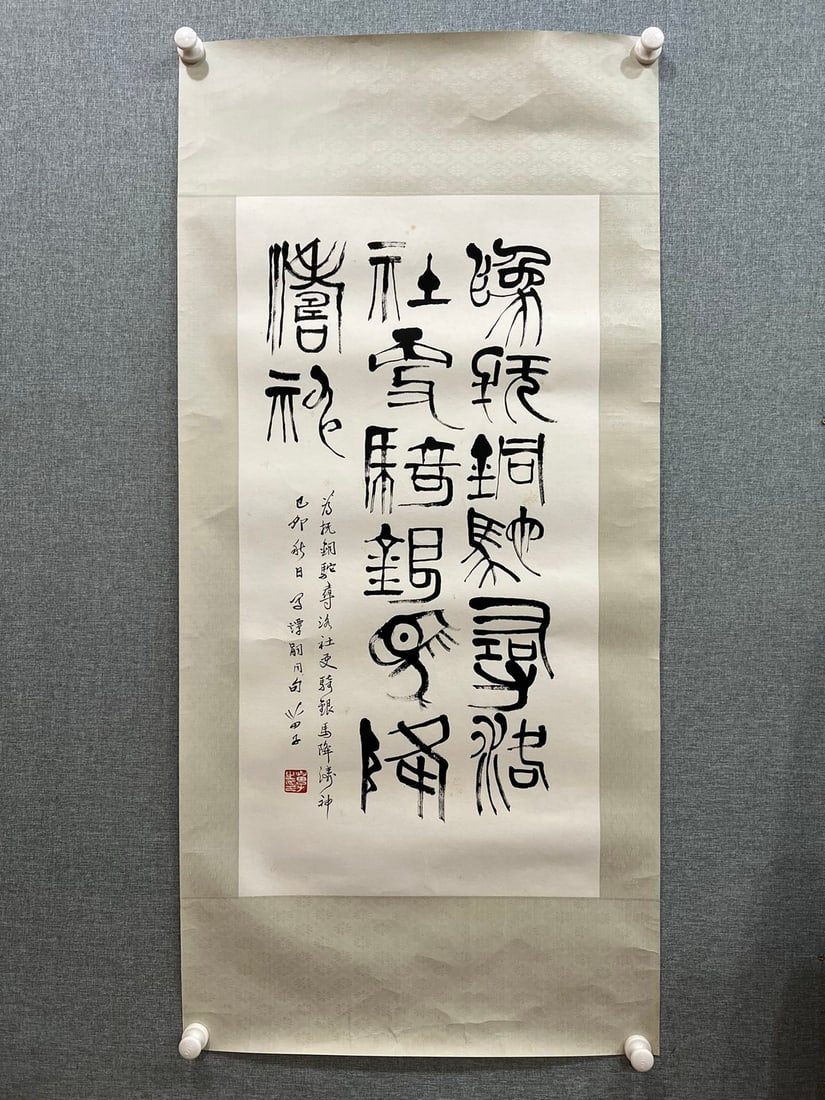 為抚銅駝尋洛
社更騎銀馬降
濤神
为抚銅駝尋洛社更騎銀馬降濤神
己卯秋日写譚嗣同句